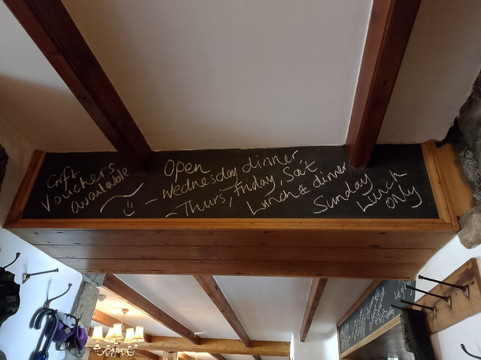 Gift
Vouchers
available
Open
- Wednesday dinner
- Thurs, Friday, Sat
Lunch & dinner
Sunday
Lunch
only